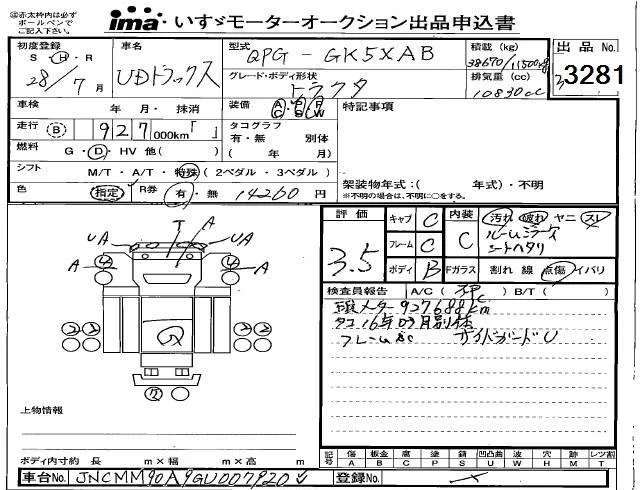 ⑩赤太枠内は必ず
ボールペンで
ご記入下さい。
ima いすゞモーターオークション出品申込書
初度登録 S・H・R 28/7月
車名 UDトラックス
型式 QPG-GK5XAB
グレード・ボディ形状 トラクタ
積載 (kg) 38670/11500kg
排気量 (cc) 10830cc
出品 No. 3281
車検 年 月・抹消
装備 A/C P/S P/W
特記事項
走行 B 927000km「 」
タコグラフ 有・無 別体
( 年 月)
燃料 G・D・HV 他( )
シフト M/T・A/T・特殊 (2ペダル・3ペダル)
色 指定 R券 有・無 14260円
架装物年式:( 年式)・不明
※不明の場合は、不明に○をする。
評価 3.5
キャブ C
フレーム C
ボディ B
内装 C
汚れ 破れ ヤニ スレ
ルームミラース
シートヘタリ
Fガラス 割れ 線 点傷 イバリ
検査員報告 A/C( ) B/T( )
927688km
タコ16年07月別体
フレームSC サイドガードU
UA A T A UA
A A
上物情報
ボディ内寸約 長 m×幅 m×高 m
記号 傷A 板金B 腐C 塗P 錆S 凹凸曲U 波W 穴H 跡M レツ割T
車台No. JNCMM90A9GU007920
登録No.